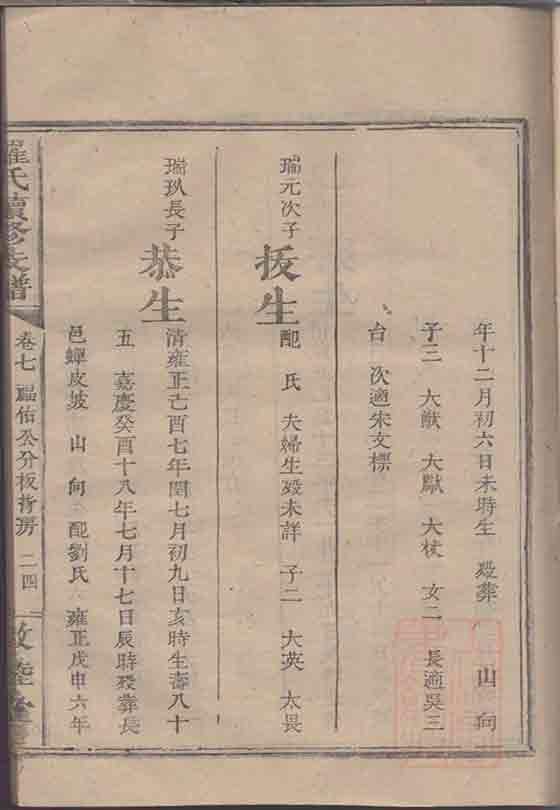 年十二月初六日未時生 歿葬 山 向
子三 大猷 大默 大枤 女二 長適吳三
台 次適宋文標
瑞元次子
扳生
配 氏 夫婦生歿未詳 子二 大英 大畏
瑞玖長子
恭生
清雍正己酉七年閏七月初九日亥時生壽八十
五 嘉慶癸酉十八年七月十七日辰時歿葬長
邑蟬皮坡 山 向 配劉氏 雍正戊申六年
羅氏續修支譜
卷七 福佑公分板背房 二四
敦睦堂